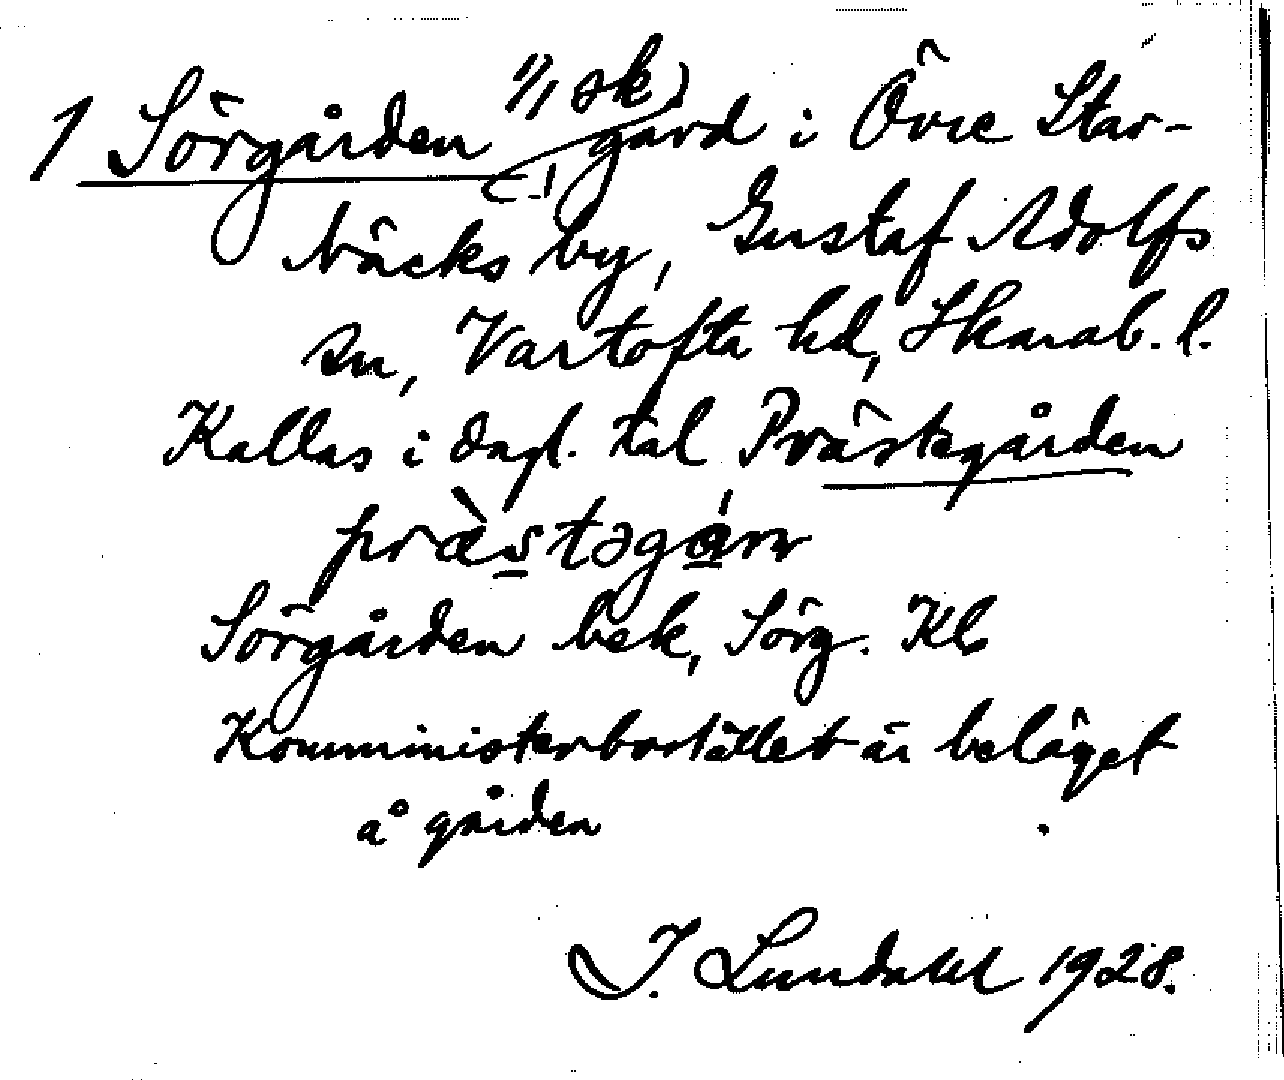 1 Sörgården 1/1 sk) gård i Övre Star-
bäcks by, Gustaf Adolfs
sn, Vartofta hd, Skarab. l.
Kallas i dagl. tal Prästegården
pràstəgán
Sörgården bek, Sörg. Kb
Komministerbostället är beläget
å gården
I. Lundahl 1928.